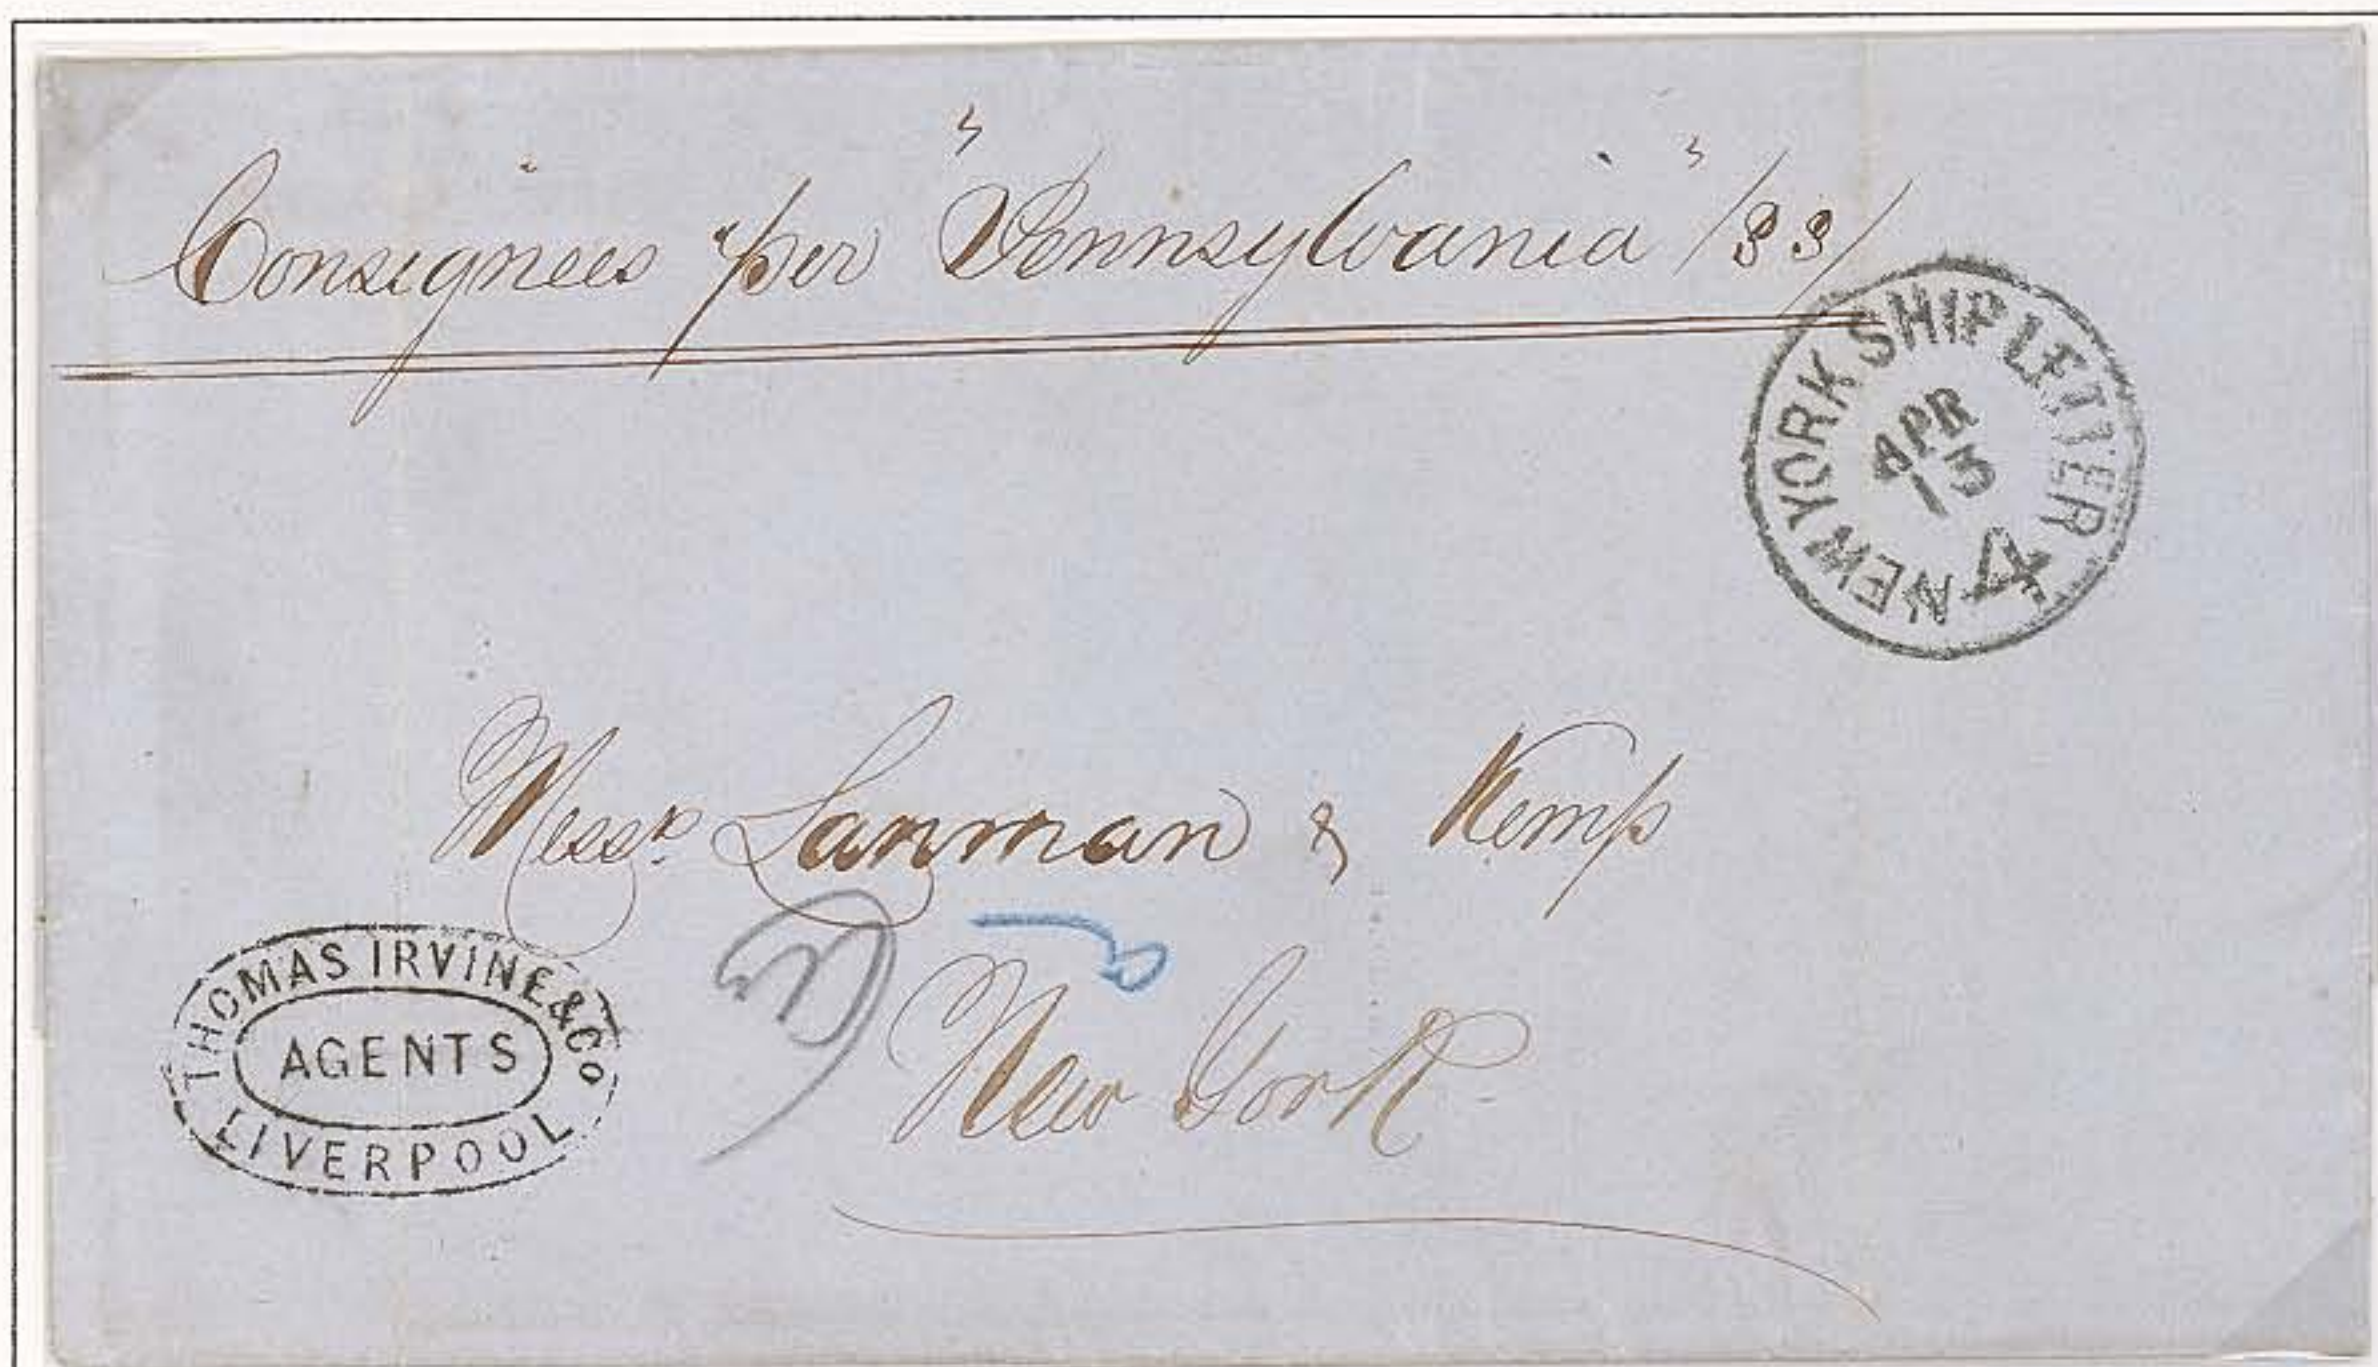 Consignees per "Pennsylvania" /SS/
NEW YORK SHIP LETTER
APR
13
4
Messrs. Lanman & Kemp
New York
THOMAS IRVINE & Co
AGENTS
LIVERPOOL